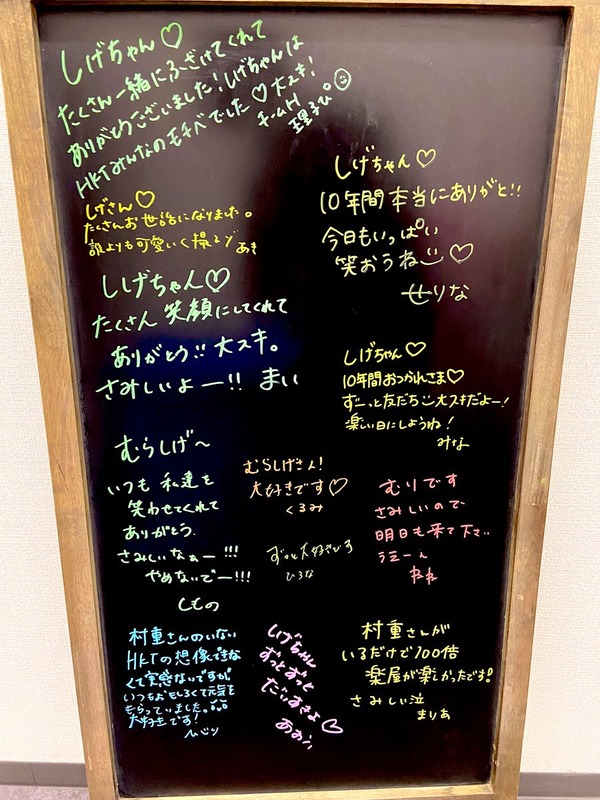 しげちゃん♡
たくさん一緒にふざけてくれて
ありがとうございました！しげちゃんは
HKTみんなのモチベでした♡大スキ！
チームH
理子ぴ
しげさん♡
たくさんお世話になりました。
誰よりも可愛いく撮るゾ あき
しげちゃん♡
10年間本当にありがと!!
今日もいっぱい
笑おうね
せりな
しげちゃん♡
たくさん笑顔にしてくれて
ありがとう!! 大スキ。
さみしいよー!! まい
しげちゃん♡
10年間おつかれさま♡
ずーっと友だち 大スキだよー！
楽しい日にしようね！
みな
むらしげ〜
いつも私達を
笑わせてくれて
ありがとう.
さみしいなぁー!!!
やめないでー!!!
しもの
むらしげさん！
大好きです♡
くるみ
ずっと大好やびう
ひろな
むりです
さみしいので
明日も来て下さい
うえーん
ねね
村重さんのいない
HKTの想像できな
くて実感ないですが
いつもおもしろくて元気を
もらっていました。
大好きです！
しげちゃん
ずっとずっと
だいすきよ♡
あおい
村重さんが
いるだけで100倍
楽屋が楽しかったです！
さみしい泣
まりあ